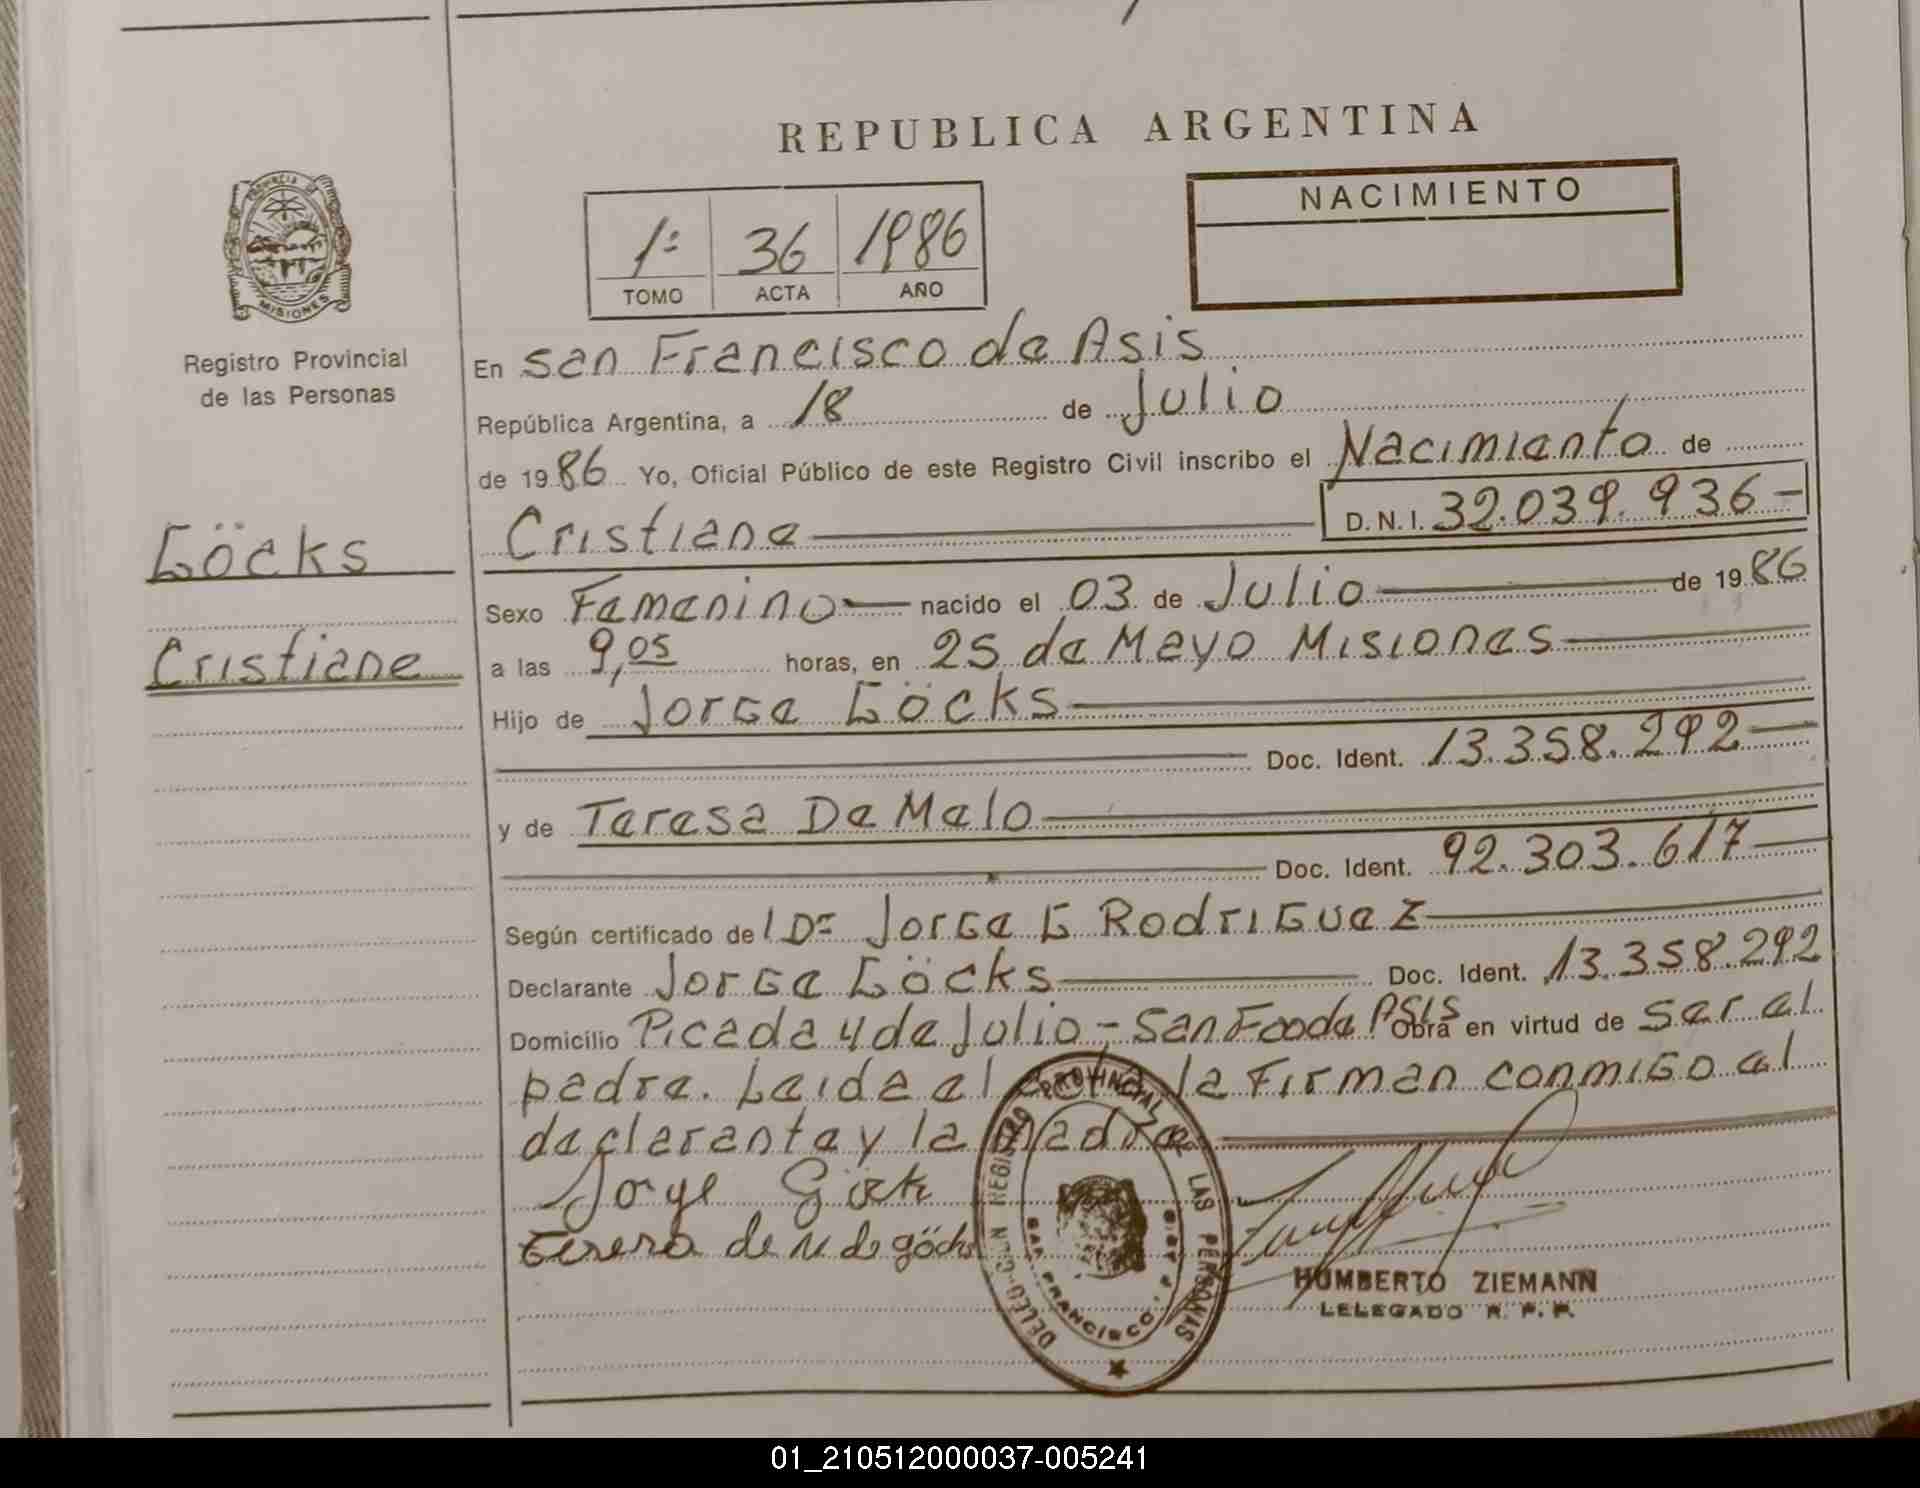 REPUBLICA ARGENTINA
PROVINCIA DE
MISIONES
Registro Provincial
de las Personas
Göcks
Cristiane
1º 36 1986
TOMO ACTA AÑO
NACIMIENTO
En San Francisco de Asis
República Argentina, a 18 de Julio
de 1986 Yo, Oficial Público de este Registro Civil inscribo el Nacimiento de
Cristiane D.N.I. 32.039.936-
Sexo Femenino nacido el 03 de Julio de 1986
a las 9,05 horas, en 25 de Mayo Misiones
Hijo de Jorge Göcks
Doc. Ident. 13.358.292
y de Teresa De Melo
Doc. Ident. 92.303.617
Según certificado de l Dr Jorge G Rodriguez
Declarante Jorge Göcks Doc. Ident. 13.358.292
Domicilio Picada 4 de Julio - San Fco de Asis Obra en virtud de ser el
padre. Leida el acta la Firman conmigo el
declarante y la madre
Jorge Göck
Teresa de M de göcks
REGISTRO PROVINCIAL DE LAS PERSONAS
SAN FRANCISCO
HUMBERTO ZIEMANN
LELEGADO R. P. P.
01_210512000037-005241